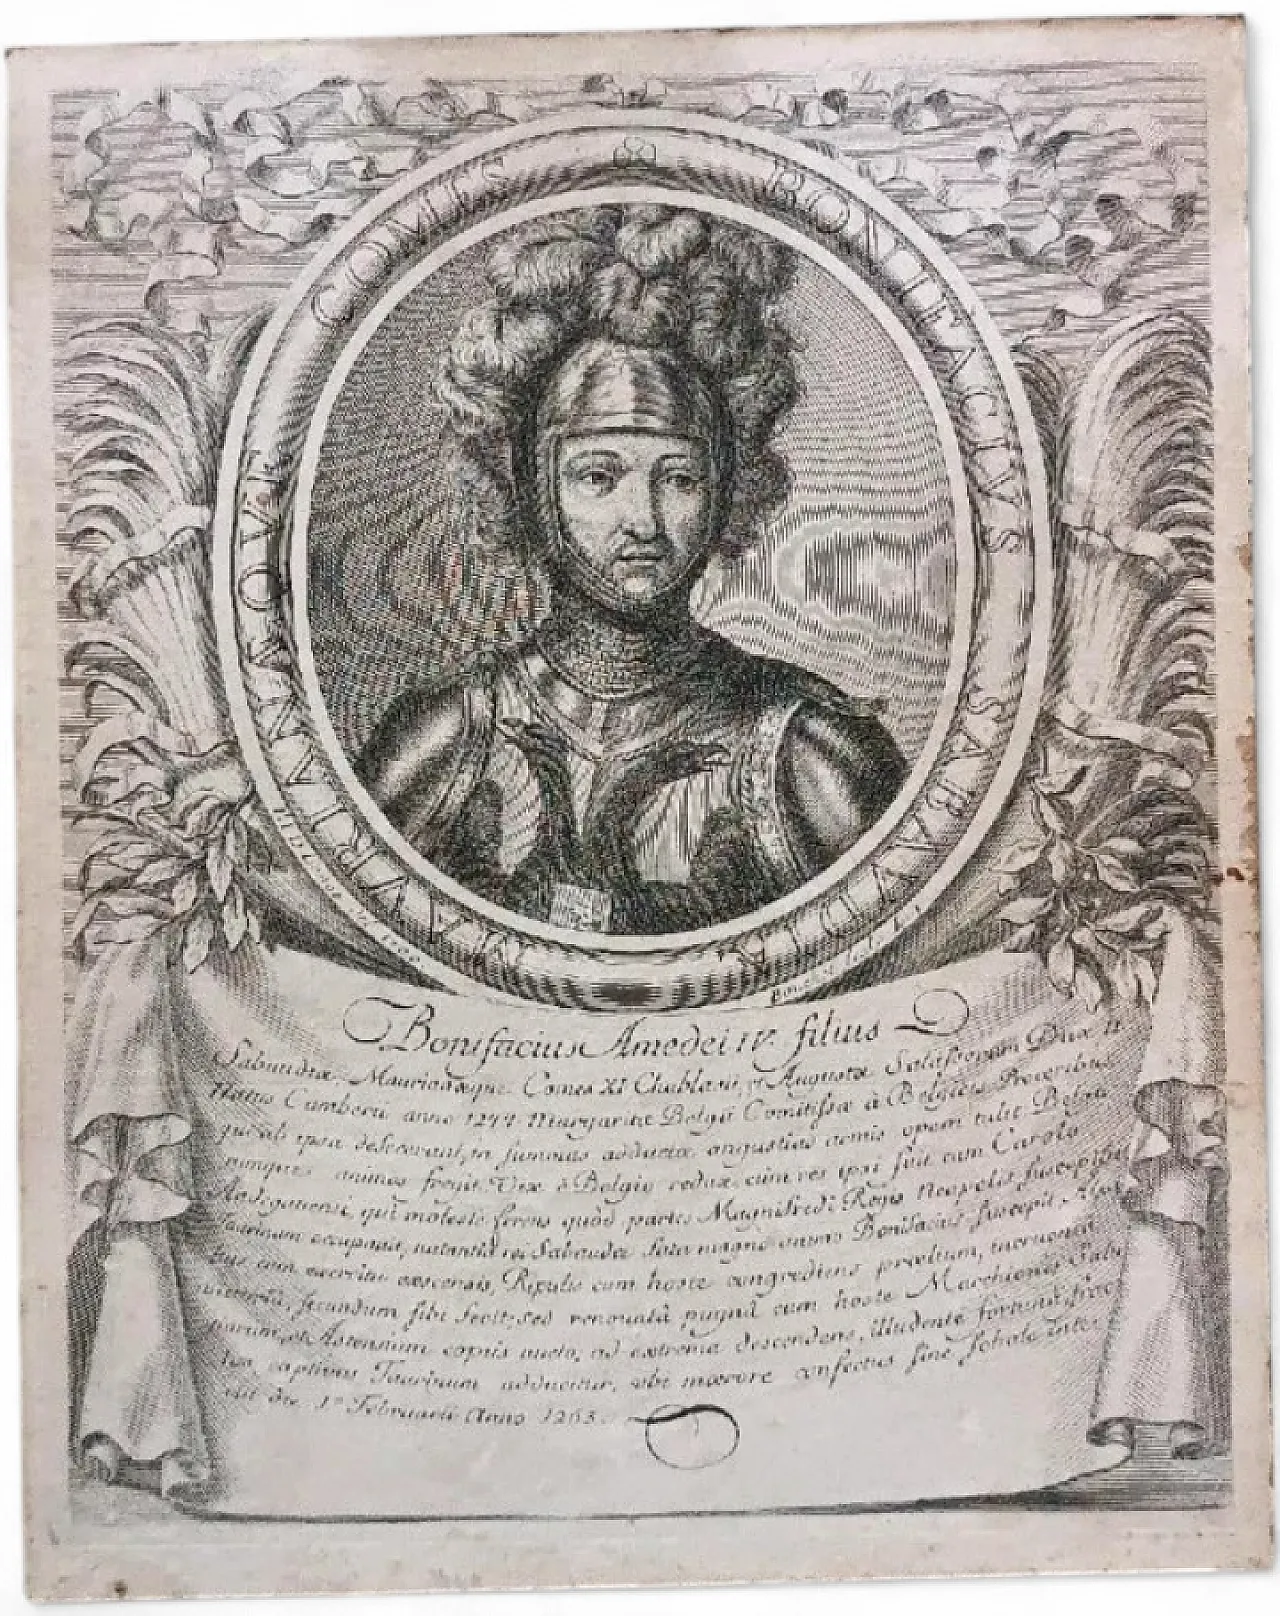 BONIFACIVS SABAVDIÆ MAVRIANNÆQVE COMES
Bonifacius Amedei IV. filius
Sabaudiæ Maurianæque Comes XI Chablasii, et Augustæ Salassorum Dux II
Natus Camberii anno 1244 Margaritæ Belgii Comitissæ à Belgicis Proceribus
quòd ab ipsa descerant, in summas adductæ angustias armis opem tulit Belga
rumque animos fregit. Vix è Belgio redux, cum res ipsi fuit cum Carolo
Andegavensi, qui molestè ferens quòd partes Magnifredi Regis Neapolis suscepisset
Taurinum occupavit, nutantia rei Sabaudæ fata magno animo Bonifacius suscepit Alpi
bus cum exercitu descensis, Ripulis cum hoste congrediens prœlium, incruenta
victoriâ, secundum sibi fecit; sed renouatâ pugnâ cum hoste Marchionis Salu
tiarum, et Astensium copiis aucto, ad extrema descendens, illudente fortunâ, frac
tus, captivus Taurinum adducitur, ubi mœrore confectus sine sobole inte
riit die 1ª Februarii Anno 1263.